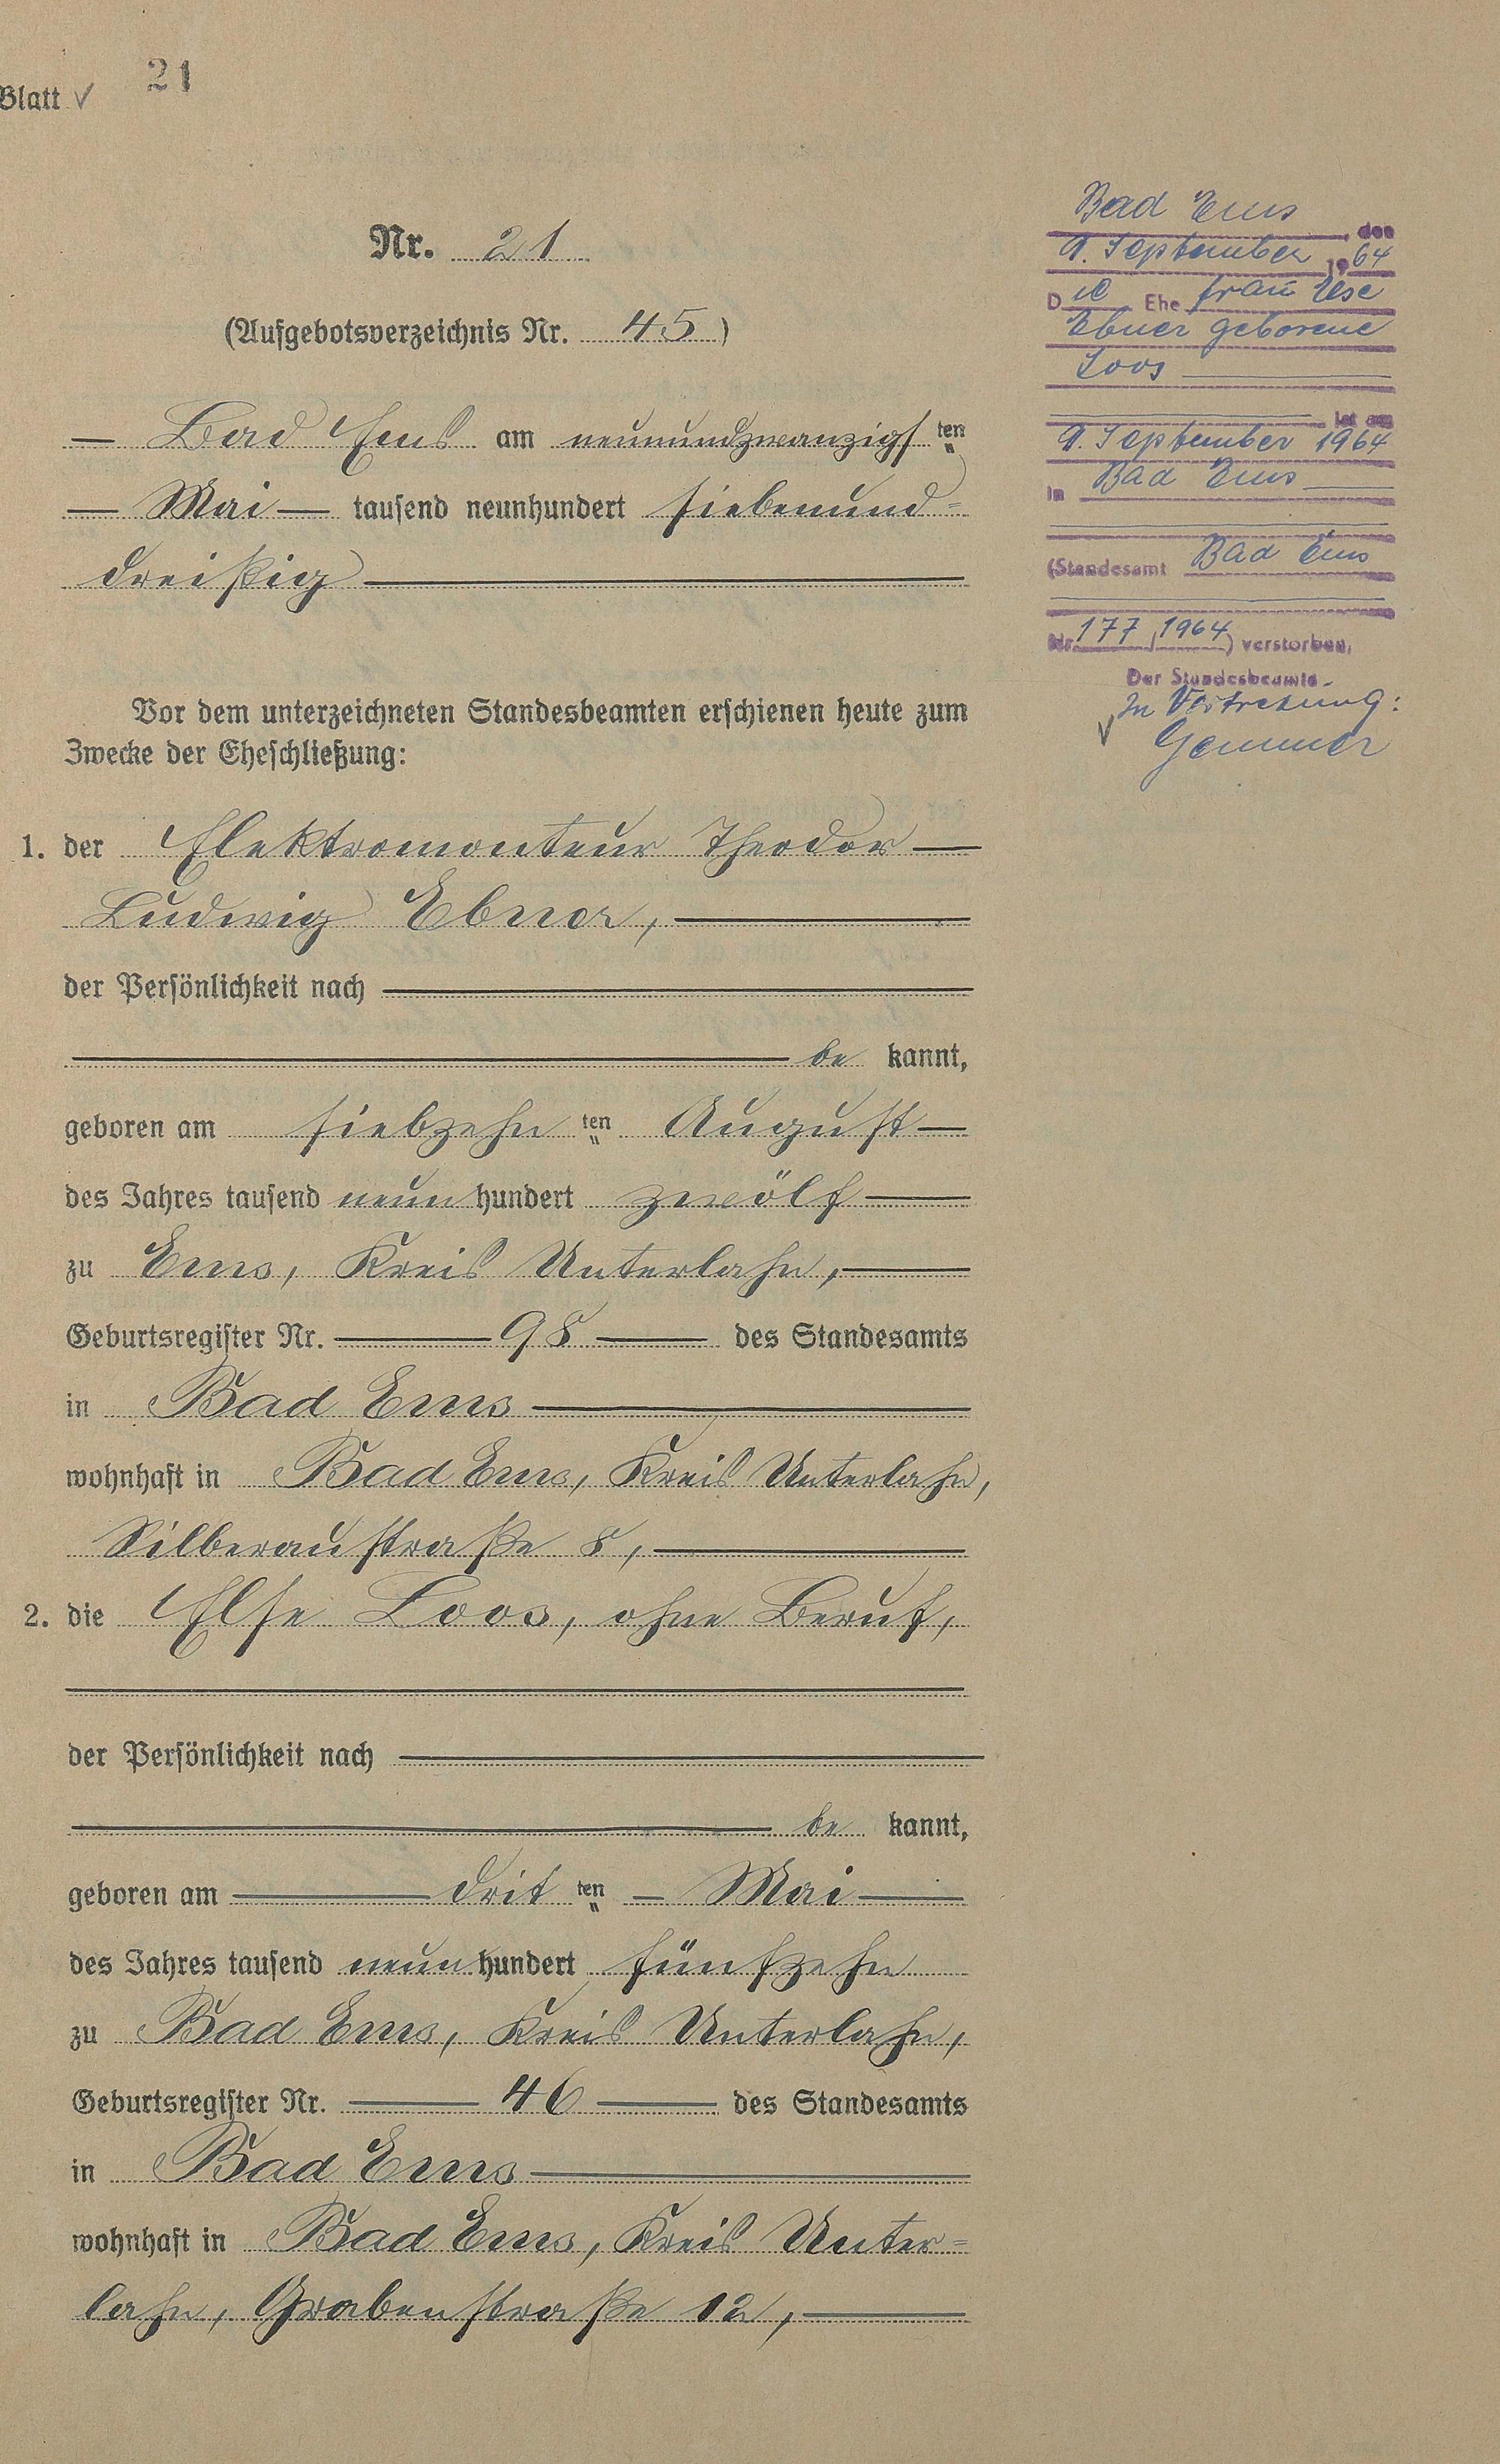 Blatt √ 21
Nr. 21
(Aufgebotsverzeichnis Nr. 45)
— Bad Ems am neunundzwanzigsten
— Mai — tausend neunhundert siebenund-
dreißig —
Vor dem unterzeichneten Standesbeamten erschienen heute zum
Zwecke der Eheschließung:
1. der Elektromonteur Theodor —
Ludwig Ebner, —
der Persönlichkeit nach —
— be kannt,
geboren am siebzehn ten August —
des Jahres tausend neun hundert zwölf —
zu Ems, Kreis Unterlahn, —
Geburtsregister Nr. — 98 — des Standesamts
in Bad Ems —
wohnhaft in Bad Ems, Kreis Unterlahn,
Silberaustraße 8, —
2. die Else Loos, ohne Beruf,
der Persönlichkeit nach —
— be kannt,
geboren am — drit ten — Mai —
des Jahres tausend neun hundert fünfzehn
zu Bad Ems, Kreis Unterlahn,
Geburtsregister Nr. — 46 — des Standesamts
in Bad Ems —
wohnhaft in Bad Ems, Kreis Unter-
lahn, Grabenstraße 12, —
Bad Ems, den
9. September 1964
Die Ehefrau Else
Ebner geborene
Loos —
ist am
9. September 1964
in Bad Ems —
(Standesamt Bad Ems
Nr 177/1964) verstorben.
Der Standesbeamte
In Vertretung:
√ Gemmer